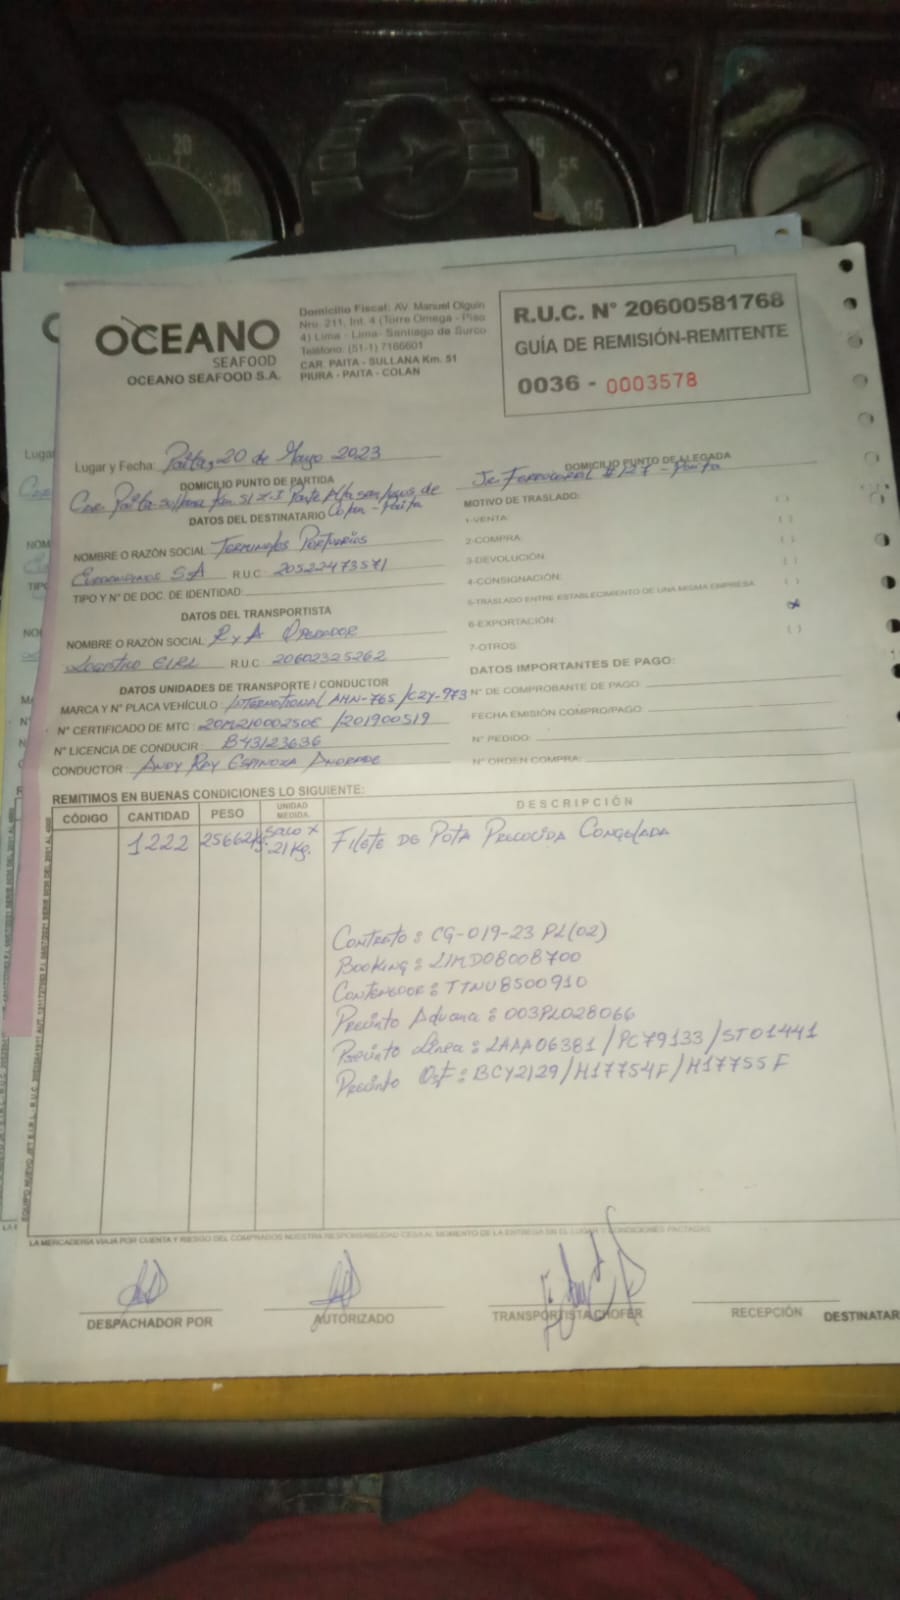 OCEANO
SEAFOOD
OCEANO SEAFOOD S.A.
Domicilio Fiscal: AV. Manuel Olguin
Nro. 211, Int. 4 (Torre Omega - Piso
4) Lima - Lima- Santiago de Surco
Teléfono: (51-1) 7166601
CAR. PAITA - SULLANA Km. 51
PIURA - PAITA - COLAN
R.U.C. N° 20600581768
GUÍA DE REMISIÓN-REMITENTE
0036 - 0003578
Lugar y Fecha: Paita, 20 de Mayo 2023
DOMICILIO PUNTO DE PARTIDA
Car. Paita Sullana Km. 51 Z.I Parte Alta de
Colan - Paita
DATOS DEL DESTINATARIO
NOMBRE O RAZÓN SOCIAL: Terminales Portuarios
Euroandinos SA R.U.C 20522473571
TIPO Y N° DE DOC. DE IDENTIDAD:
DATOS DEL TRANSPORTISTA
NOMBRE O RAZÓN SOCIAL: R y A Operador
Logistico EIRL R.U.C 20602325262
DATOS UNIDADES DE TRANSPORTE / CONDUCTOR
MARCA Y N° PLACA VEHÍCULO: International AHN-765 /C2Y-973
N° CERTIFICADO DE MTC: 20M21000250E /201900519
N° LICENCIA DE CONDUCIR: B43123636
CONDUCTOR: Andy Ray Espinoza Andrade
DOMICILIO PUNTO DE LLEGADA
Jr. Ferrocarril #127 - Paita
MOTIVO DE TRASLADO:
1-VENTA: ( )
2-COMPRA: ( )
3-DEVOLUCIÓN ( )
4-CONSIGNACIÓN: ( )
5-TRASLADO ENTRE ESTABLECIMIENTO DE UNA MISMA EMPRESA ( )
6-EXPORTACIÓN: x
7-OTROS: ( )
DATOS IMPORTANTES DE PAGO:
N° DE COMPROBANTE DE PAGO:
FECHA EMISIÓN COMPRO/PAGO:
N° PEDIDO:
N° ORDEN COMPRA:
REMITIMOS EN BUENAS CONDICIONES LO SIGUIENTE:
CÓDIGO CANTIDAD PESO UNIDAD MEDIDA DESCRIPCIÓN
1222 25662Kg. saco x 21Kg. Filete de Pota Precocida Congelada
Contrato: CG-019-23 PL(02)
Booking: LIMD08008700
Contenedor: TTNU8500910
Precinto Aduana: 003PL028066
Precinto Linea: LAAA06381/PC79133/ST01441
Precinto Osf: BCY2129/H17754F/H17755F
LA MERCADERIA VIAJA POR CUENTA Y RIESGO DEL COMPRADOR NUESTRA RESPONSABILIDAD CESA AL MOMENTO DE LA ENTREGA EN EL LUGAR Y CONDICIONES PACTADAS
DESPACHADOR POR
AUTORIZADO
TRANSPORTISTA CHOFER
RECEPCIÓN
DESTINATAR